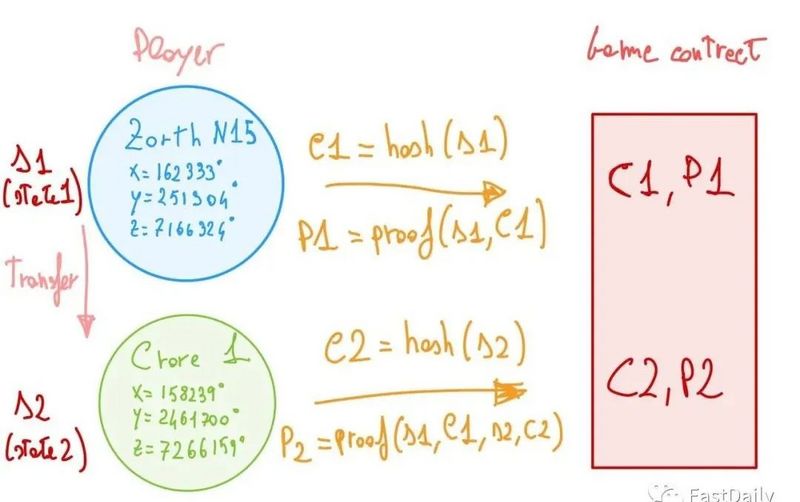 Player
Game contract
s1
(state1)
Zorth N15
X=162333°
Y=251304°
Z=7166324°
C1 = hash(s1)
P1 = proof(s1, C1)
C1, P1
Transfer
s2
(state2)
Crore 1
X=158239°
Y=2461700°
Z=7266159°
C2 = hash(s2)
P2 = proof(s1, C1, s2, C2)
C2, P2
FastDaily